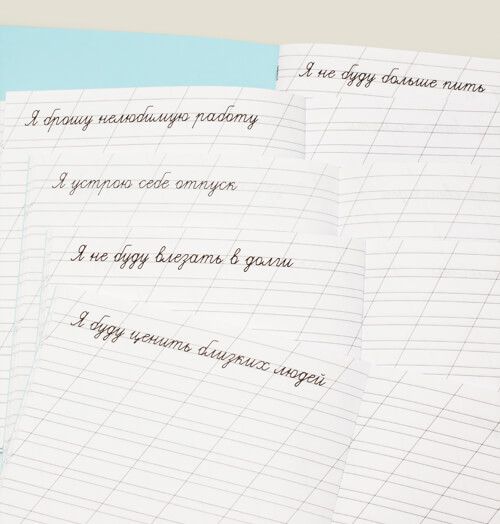 Я не буду больше пить
Я брошу нелюбимую работу
Я устрою себе отпуск
Я не буду влезать в долги
Я буду ценить близких людей